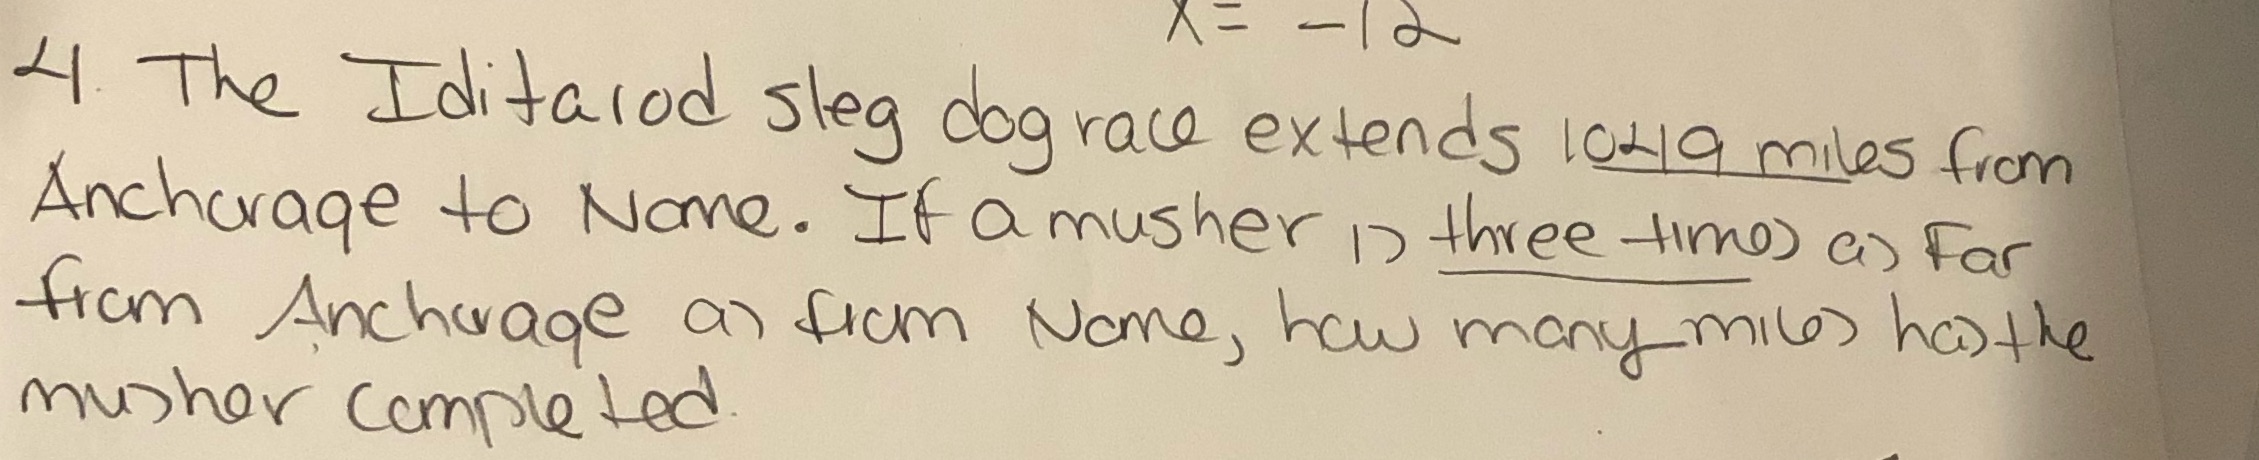 x= -12
4. The Iditarod sleg dog race extends 1049 miles from
Anchorage to Nome. If a musher is three times as far
from Anchorage as from Nome, how many miles has the
musher completed.